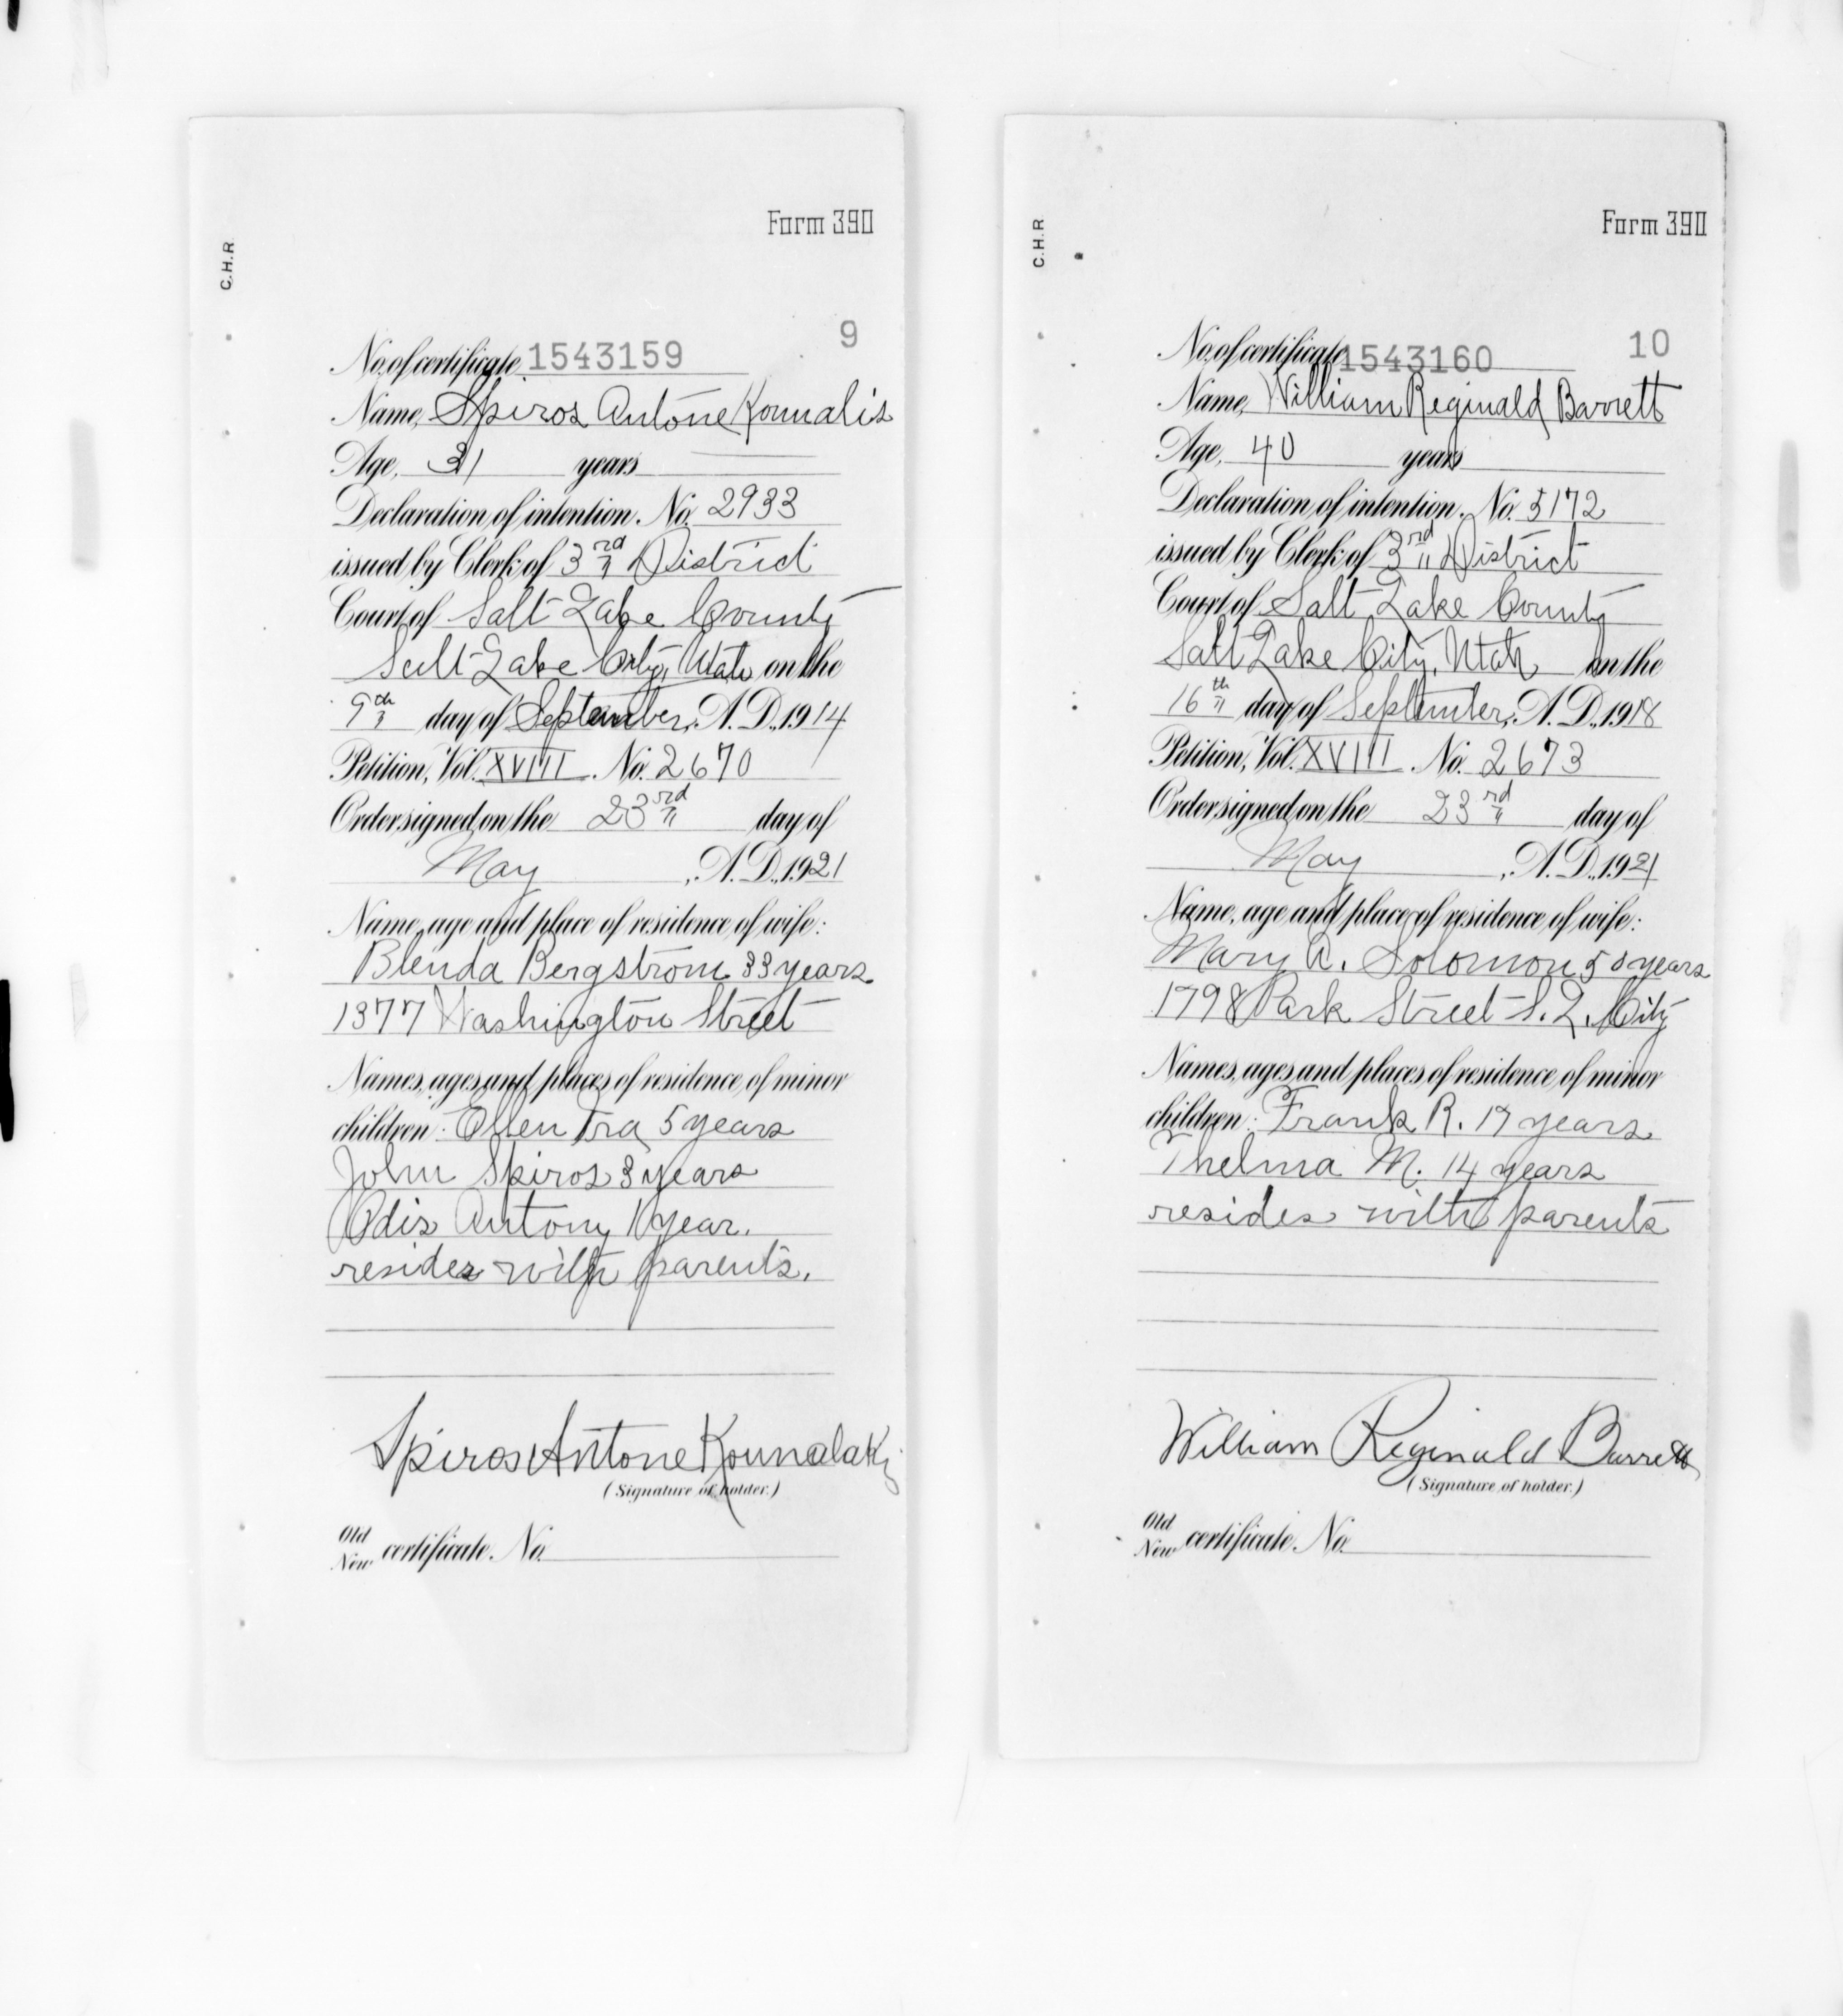 Form 390
C.H.R.
9
No. of certificate, 1543159
Name, Spiros Antone Kounalis
Age, 31 years
Declaration of intention, No. 2933
issued by Clerk of 3rd District
Court of Salt Lake County
Salt Lake City, Utah on the
9th day of September, A. D., 1914
Petition, Vol. XVIII No. 2670
Order signed on the 23rd day of
May, A. D., 1921
Name, age and place of residence of wife:
Blenda Bergstrom 33 years
1377 Washington Street
Names, ages and places of residence of minor
children: Ellen 5 years
John Spiros 3 years
Odis Antony 1 year.
resides with parents.
Spiros Antone Kounalakis
(Signature of holder.)
Old
New certificate, No.
Form 390
C.H.R.
10
No. of certificate, 1543160
Name, William Reginald Barrett
Age, 40 years
Declaration of intention, No. 5172
issued by Clerk of 3rd District
Court of Salt Lake County
Salt Lake City, Utah on the
16th day of September, A. D., 1918
Petition, Vol. XVIII No. 2673
Order signed on the 23rd day of
May, A. D., 1921
Name, age and place of residence of wife:
Mary A. Solomon 50 years
1798 Park Street S. L. City
Names, ages and places of residence of minor
children: Frank R. 17 years
Thelma M. 14 years
resides with parents
William Reginald Barrett
(Signature of holder.)
Old
New certificate, No.